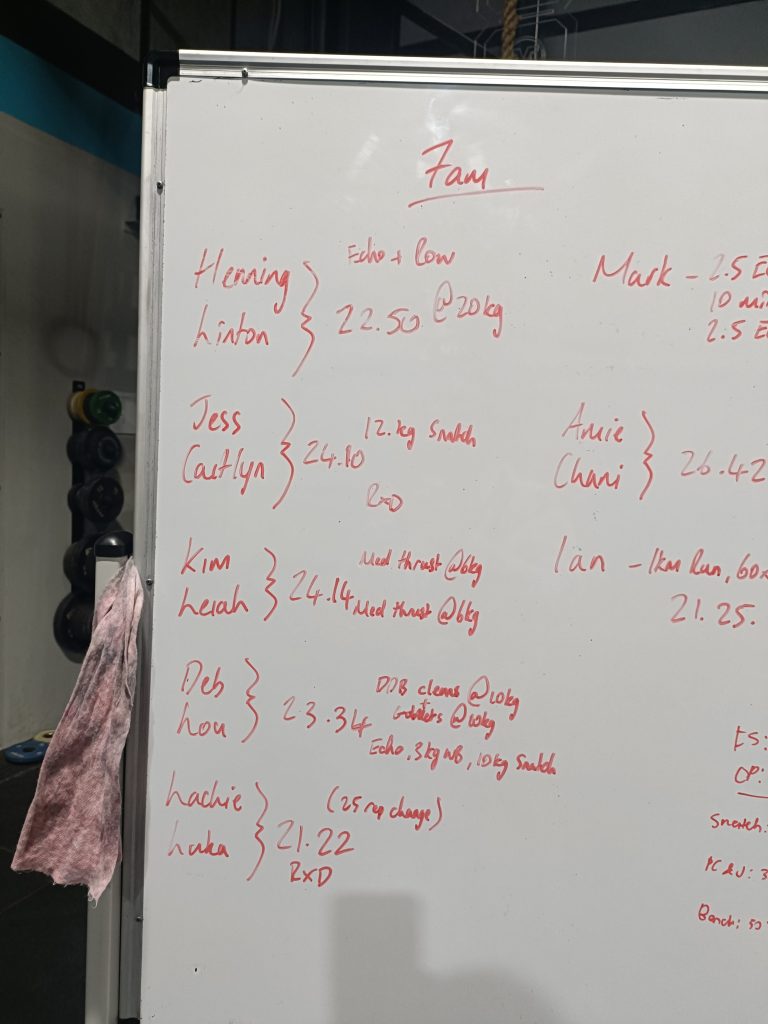 7am
Echo + Row
Henning
Linton
22.50 @20kg
Mark - 2.5 E
10 mi
2.5 E
Jess
Caitlyn
24.10
12.kg Snatch
RxD
Amie
Chani
26.42
Kim
Leiah
24.14
Med thrust @6kg
Med thrust @6kg
Ian - 1km Run, 60
21.25.
Deb
Lou
23.34
DDB cleans @10kg
+
Goblets @10kg
Echo, 3kg WB, 10kg Snatch
Lachie
Luka
(25 rep change)
21.22
RxD
ES:
CP:
Snatch:
PC&J: 3
Bench: 50